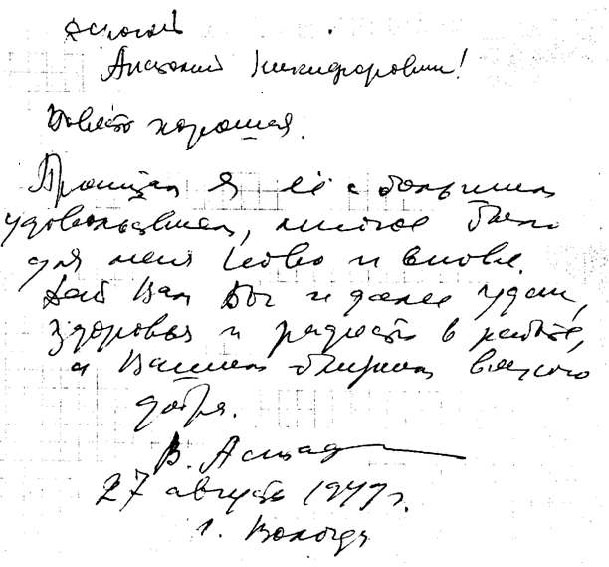 Дорогой
Анатолий Никифорович!
Повесть хорошая.
Прочитал я её с большим
удовольствием, многое было
для меня ново и вновь.
Дай Вам Бог и далее удачи,
здоровья и радости в работе,
а Вашим близким всякого
добра.
В. Астафьев
27 августа 1977 г.
г. Вологда